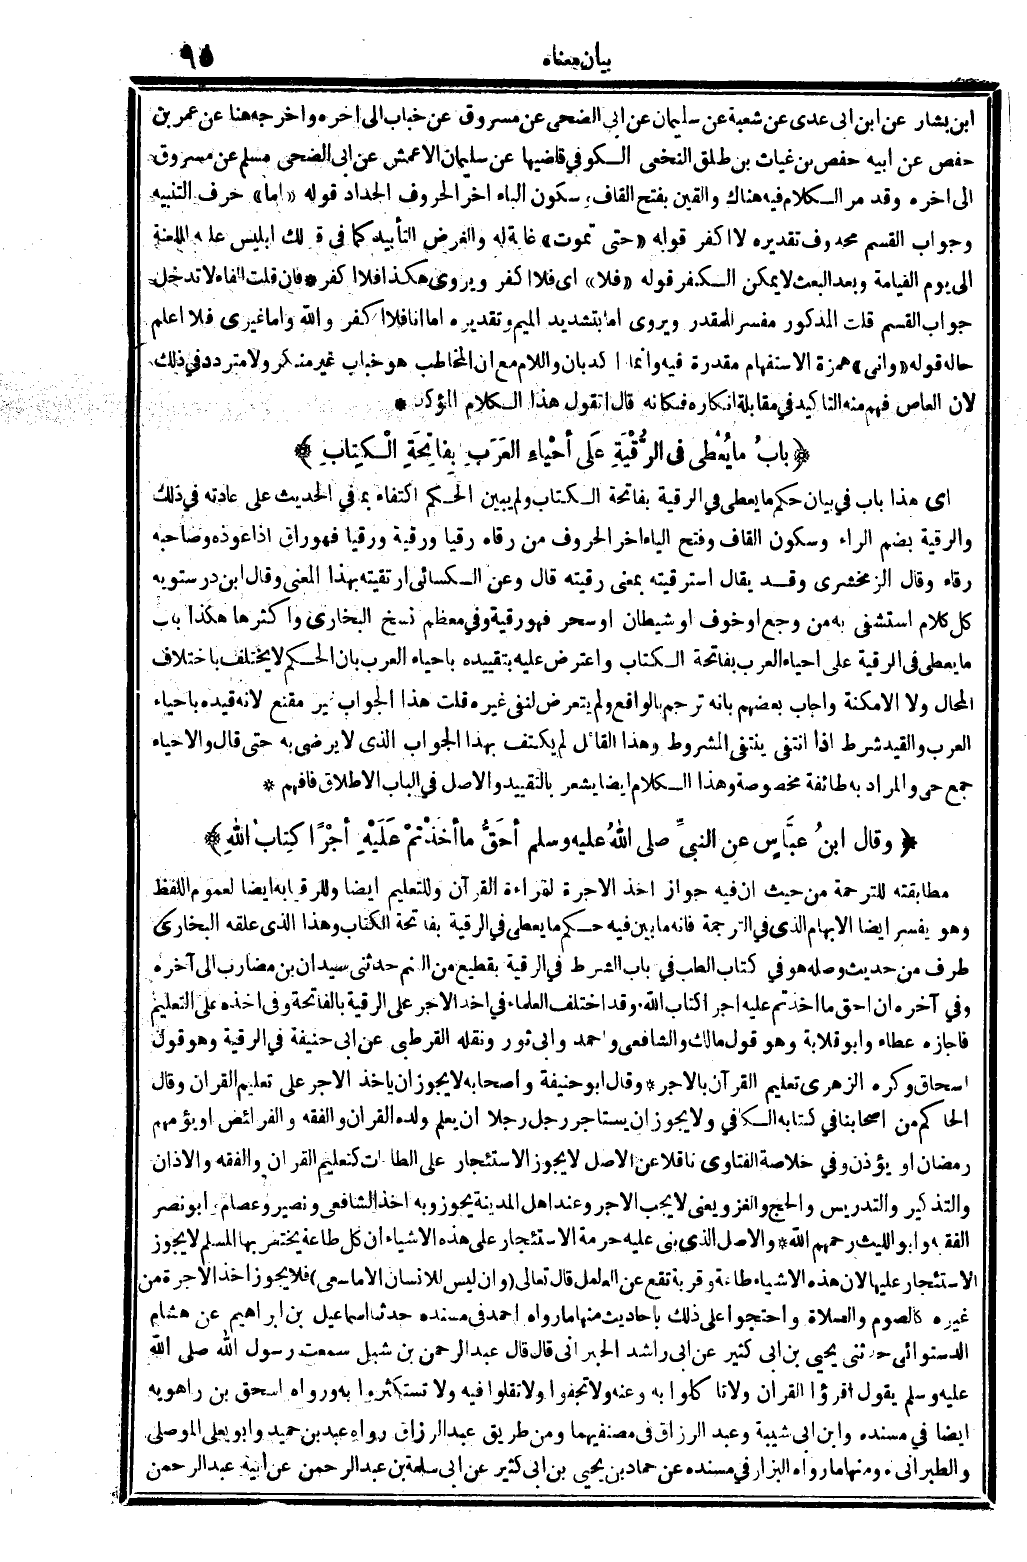 بيان معناه ٩٥
ابن بشار عن ابن ابى عدى عن شعبة عن سليمان عن ابى الضحى عن مسروق عن خباب الى اخره واخرجه هنا عن عمر بن
حفص عن ابيه حفص بن غياث بن طلق النخعى الكوفي قاضيها عن سليمان الاعمش عن ابى الضحى مسلم عن مسروق
الى اخره وقد مر الكلام فيه هناك والقين بفتح القاف وسكون الياء اخر الحروف الحداد قوله «اما» حرف التنبيه
وجواب القسم محذوف تقديره لا اكفر قوله «حتى تموت» غاية له والغرض التأبيد كما في قولك ابليس عليه اللعنة
الى يوم القيامة وبعد البعث لا يمكن الكفر قوله «فلا» اى فلا اكفر ويروى هكذا فلا اكفر * فان قلت الفاء لا تدخل
جواب القسم قلت المذكور مفسر للمقدر ويروى اما بتشديد الميم وتقديره اما انا فلا اكفر والله واما غيرى فلا اعلم
حاله قوله «وانى» همزة الاستفهام مقدرة فيه وانما اكد بان واللام مع ان المخاطب هو خباب غير منكر ولا متردد في ذلك
لان العاص فهم منه التاكيد في مقابلة انكاره فكانه قال اتقول هذا الكلام المؤكد *
﴿ بابُ ما يُعْطى فى الرُّقْيَةِ عَلَى أحْياءِ العَرَبِ بِفاتِحَةِ الْكِتابِ ﴾
اى هذا باب في بيان حكم ما يعطى في الرقية بفاتحة الكتاب ولم يبين الحكم اكتفاء بما في الحديث على عادته في ذلك
والرقية بضم الراء وسكون القاف وفتح الياء اخر الحروف من رقاه رقيا ورقية ورقيا فهو راق اذا عوذه وصاحبه
رقاء وقال الزمخشرى وقد يقال استرقيته بمعنى رقيته قال وعن الكسائى ارتقيته بهذا المعنى وقال ابن درستويه
كل كلام استشفى به من وجع او خوف او شيطان او سحر فهو رقية وفي معظم نسخ البخارى واكثرها هكذا باب
ما يعطى فى الرقية على احياء العرب بفاتحة الكتاب واعترض عليه بتقييده باحياء العرب بان الحكم لا يختلف باختلاف
المحال ولا الامكنة واجاب بعضهم بانه ترجم بالواقع ولم يتعرض لنفى غيره قلت هذا الجواب غير مقنع لانه قيده باحياء
العرب والقيد شرط اذا انتفى ينتفى المشروط وهذا القائل لم يكتف بهذا الجواب الذى لا يرضى به حتى قال والاحياء
جمع حى والمراد به طائفة مخصوصة وهذا الكلام ايضا يشعر بالتقييد والاصل في الباب الاطلاق فافهم *
﴿ وقال ابنُ عبَّاسٍ عنِ النبيِّ صلى اللهُ عليه وسلم أحَقُّ ما أخَذْتمْ عَلَيْهِ أجْرًا كِتابُ اللهِ ﴾
مطابقته للترجمة من حيث ان فيه جواز اخذ الاجرة لقراءة القرآن وللتعليم ايضا وللرقيا به ايضا لعموم اللفظ
وهو يفسر ايضا الابهام الذى في الترجمة فانه ما بين فيه حكم ما يعطى في الرقية بفاتحة الكتاب وهذا الذى علقه البخارى
طرف من حديث وصله هو في كتاب الطب في باب الشرط في الرقية بقطيع من الغنم حدثنى سيدان بن مضارب الى آخره
وفي آخره ان احق ما اخذتم عليه اجرا كتاب الله. وقد اختلف العلماء في اخذ الاجر على الرقية بالفاتحة وفى اخذه على التعليم
فاجازه عطاء وابو قلابة وهو قول مالك والشافعى واحمد وابى ثور ونقله القرطبى عن ابى حنيفة في الرقية وهو قول
اسحاق وكره الزهرى تعليم القرآن بالاجر * وقال ابو حنيفة واصحابه لا يجوز ان ياخذ الاجر على تعليم القران وقال
الحاكم من اصحابنا في كتابه الكافي ولا يجوز ان يستاجر رجل رجلا ان يعلم ولده القران والفقه والفرائض او يؤمهم
رمضان او يؤذن وفي خلاصة الفتاوى ناقلا عن الاصل لا يجوز الاستئجار على الطاعات كتعليم القران والفقه والاذان
والتذكير والتدريس والحج والغزو يعنى لا يجب الاجر وعند اهل المدينة يجوز وبه اخذ الشافعى ونصير وعصام وابو نصر
الفقيه وابو الليث رحمهم الله * والاصل الذى بنى عليه حرمة الاستئجار على هذه الاشياء ان كل طاعة يختص بها المسلم لا يجوز
الاستئجار عليها لان هذه الاشياء طاعة وقربة تقع عن العامل قال تعالى (وان ليس للانسان الا ما سعى) فلا يجوز اخذ الاجرة من
غيره كالصوم والصلاة واحتجوا على ذلك باحاديث منها ما رواه احمد في مسنده حدثنا اسماعيل بن ابراهيم عن هشام
الدستوائى حدثنى يحيى بن ابى كثير عن ابى راشد الحبرانى قال قال عبد الرحمن بن شبل سمعت رسول الله صلى الله
عليه وسلم يقول اقرؤا القران ولا تاكلوا به وعنه ولا تجفوا ولا تغلوا فيه ولا تستكثروا به ورواه اسحق بن راهويه
ايضا في مسنده وابن ابى شيبة وعبد الرزاق فى مصنفيهما ومن طريق عبد الرزاق رواه عبد بن حميد وابو يعلى الموصلى
والطبرانى. ومنها ما رواه البزار في مسنده عن حماد بن يحيى بن ابى كثير عن ابى سلمة بن عبد الرحمن عن أبيه عبد الرحمن